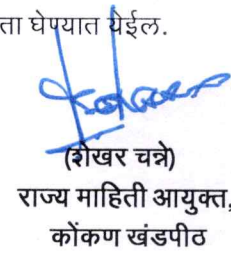 ता घेण्यात येईल.
(शेखर चन्ने)
राज्य माहिती आयुक्त,
कोंकण खंडपीठ